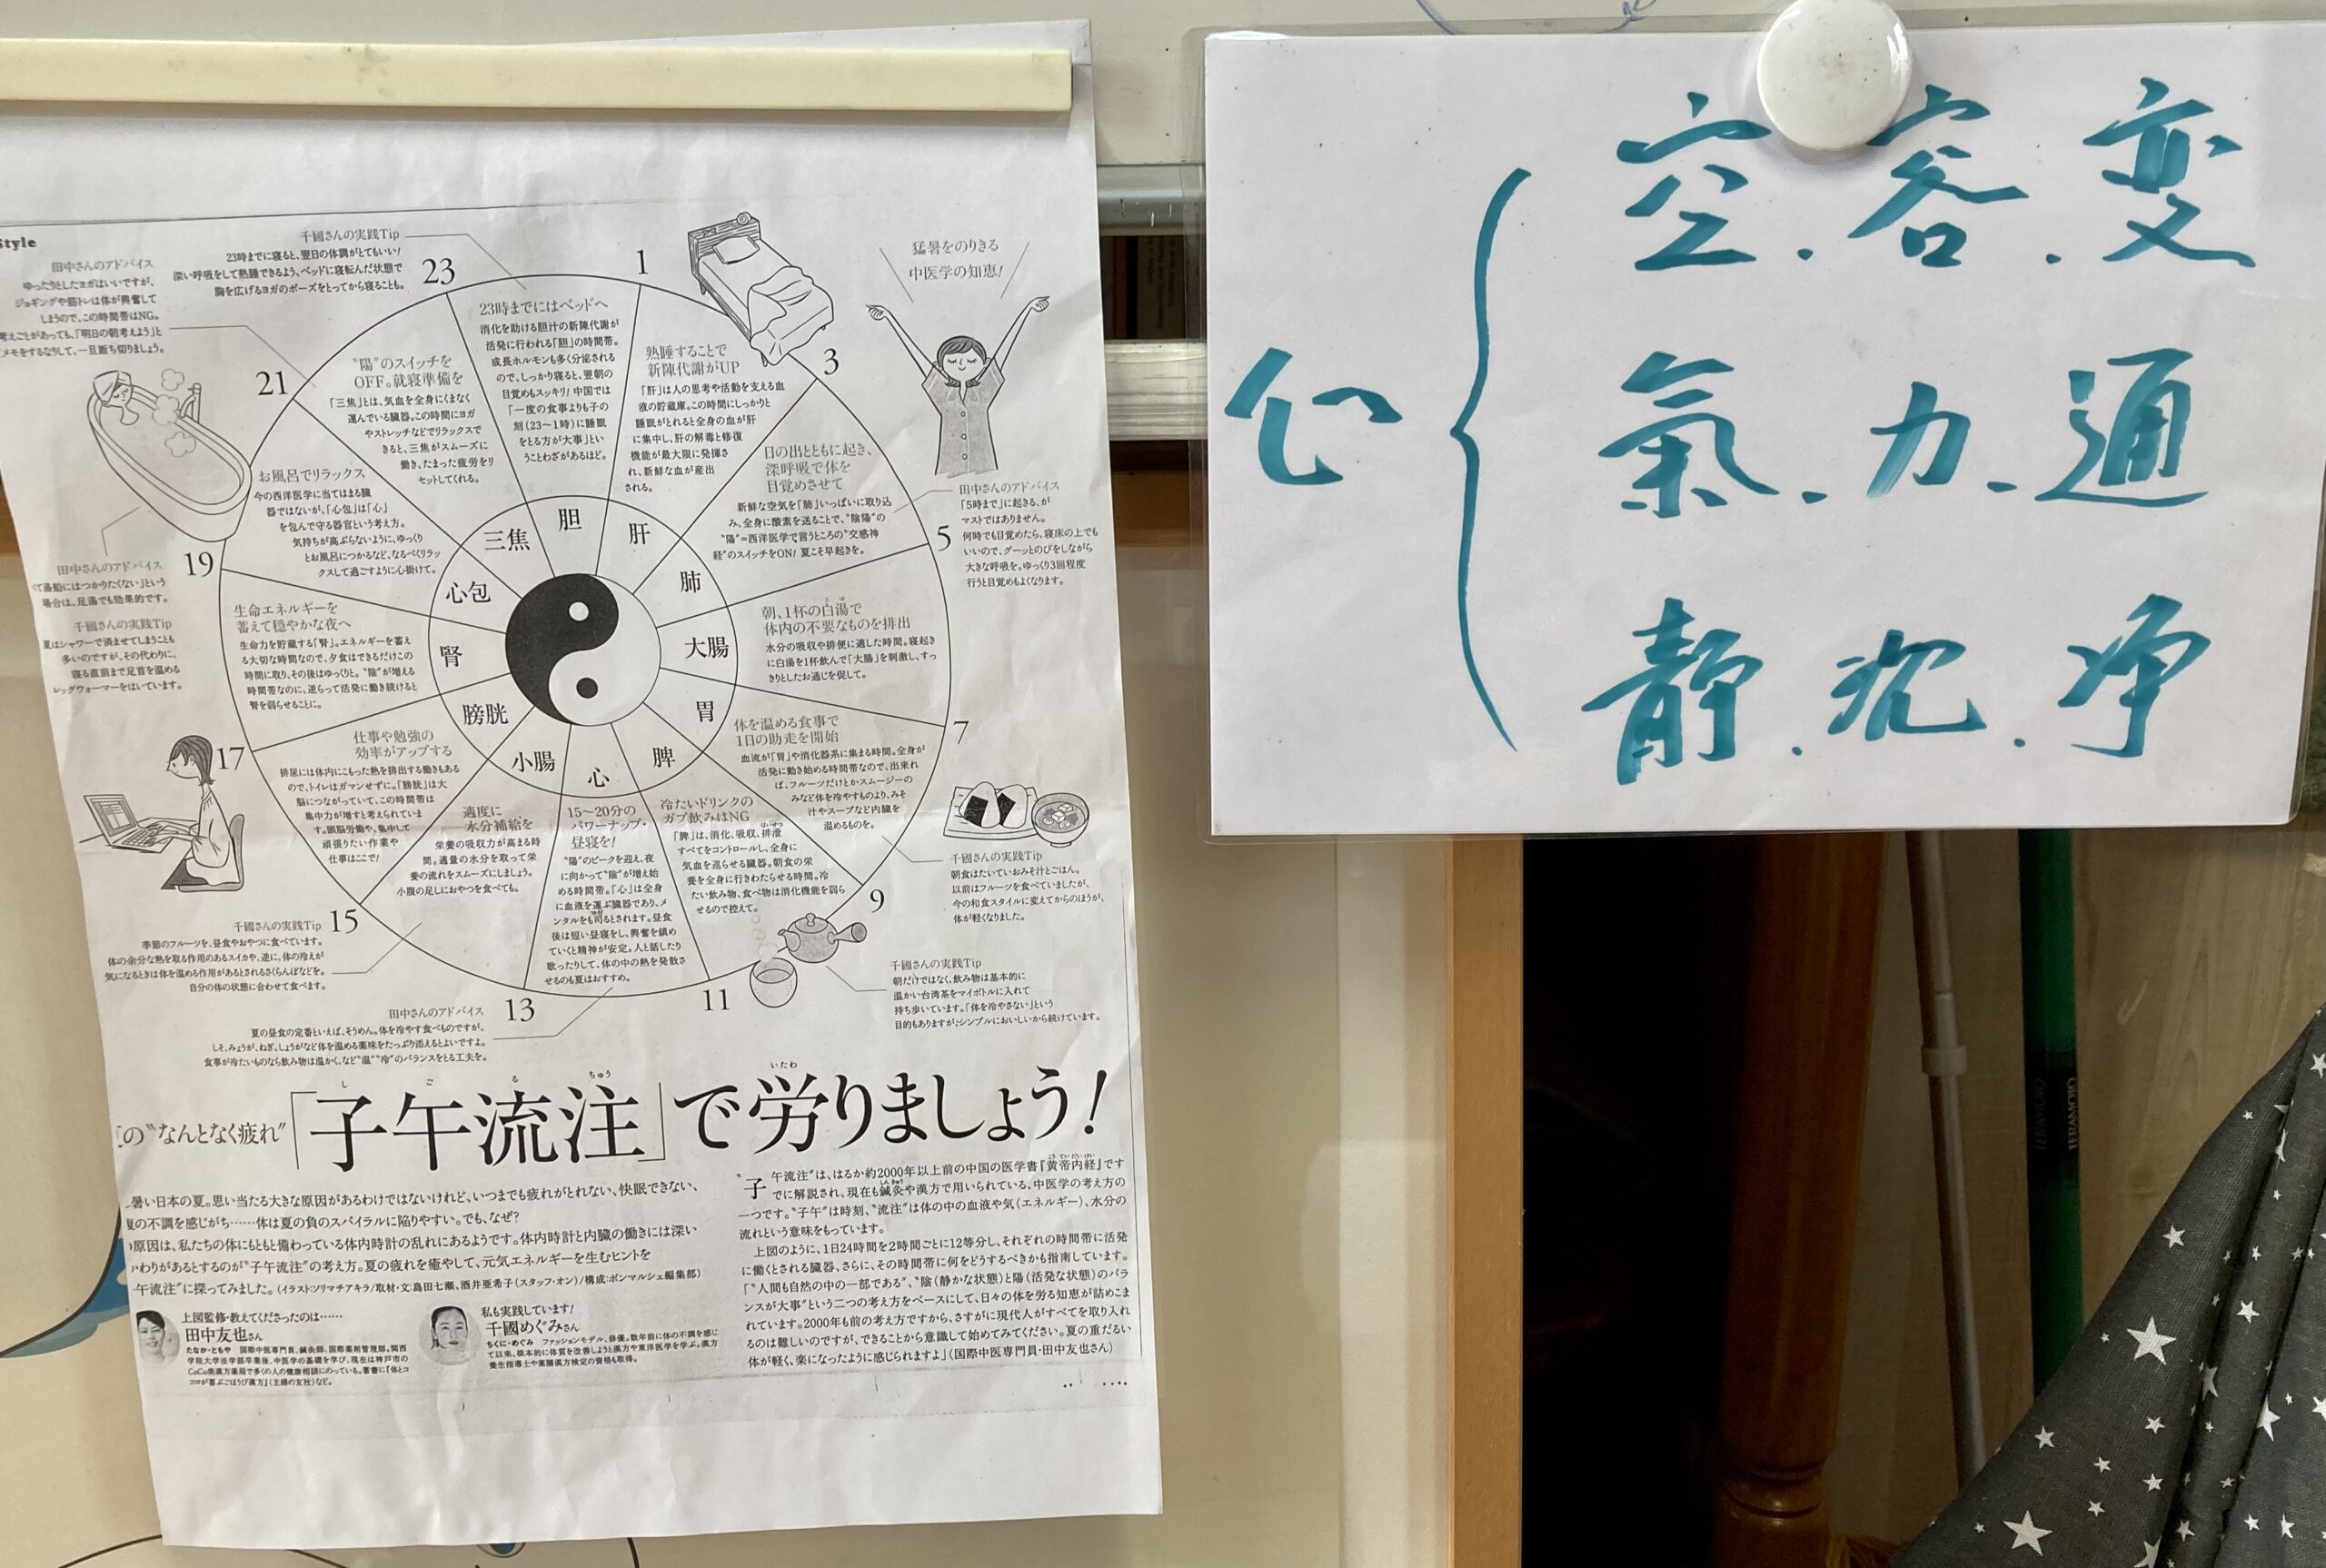 Style
千國さんの実践Tip
23時までに寝ると、翌日の体調がとてもいい!
深い呼吸をして熟睡できるよう、ベッドに寝転んだ状態で
胸を広げるヨガのポーズをとってから寝ることも。
田中さんのアドバイス
ゆったりとしたヨガはいいですが、
ジョギングや筋トレは体が興奮して
しまうので、この時間帯はNG。
考えごとがあっても、「明日の朝考えよう」と
メモをするなりして、一旦断ち切りましょう。
猛暑をのりきる
中医学の知恵!
23
1
3
5
7
9
11
13
15
17
19
21
23時までにはベッドへ
消化を助ける胆汁の新陳代謝が
活発に行われる「胆」の時間帯。
成長ホルモンも多く分泌される
ので、しっかり寝ると、翌朝の
目覚めもスッキリ!中国では
「一度の食事よりも子の
刻(23〜1時)に睡眠
をとる方が大事」とい
うことわざがあるほど。
熟睡することで
新陳代謝がUP
「肝」は人の思考や活動を支える血
液の貯蔵庫。この時間にしっかりと
睡眠がとれると全身の血が肝
に集中し、肝の解毒と修復
機能が最大限に発揮さ
れ、新鮮な血が産出
される。
日の出とともに起き、
深呼吸で体を
目覚めさせて
新鮮な空気を「肺」いっぱいに取り込
み、全身に酸素を送ることで、"陰陽"の
"陽"=西洋医学で言うところの"交感神
経"のスイッチをON!夏こそ早起きを。
田中さんのアドバイス
「5時まで」に起きる、が
マストではありません。
何時でも目覚めたら、寝床の上でも
いいので、グーッとのびをしながら
大きな呼吸を。ゆっくり3回程度
行うと目覚めもよくなります。
朝、1杯の白湯で
体内の不要なものを排出
水分の吸収や排便に適した時間。寝起き
に白湯を1杯飲んで「大腸」を刺激し、すっ
きりとしたお通じを促して。
体を温める食事で
1日の助走を開始
血流が「胃」や消化器系に集まる時間。全身が
活発に動き始める時間帯なので、出来れ
ば、フルーツだけとかスムージーの
みなど体を冷やすものより、みそ
汁やスープなど内臓を
温めるものを。
千國さんの実践Tip
朝食はたいていおみそ汁とごはん。
以前はフルーツを食べていましたが、
今の和食スタイルに変えてからのほうが、
体が軽くなりました。
冷たいドリンクの
ガブ飲みはNG
「脾」は、消化、吸収、排泄
すべてをコントロールし、全身に
気血を巡らせる臓器。朝食の栄
養を全身に行きわたらせる時間。冷
たい飲み物、食べ物は消化機能を弱ら
せるので控えて。
千國さんの実践Tip
朝だけではなく、飲み物は基本的に
温かい台湾茶をマイボトルに入れて
持ち歩いています。「体を冷やさない」という
目的もありますが、シンプルにおいしいから続けています。
15〜20分の
パワーナップ・
昼寝を!
"陽"のピークを迎え、夜
に向かって"陰"が増え始
める時間帯。「心」は全身
に血液を運ぶ臓器であり、メ
ンタルをも司るとされます。昼食
後は短い昼寝をし、興奮を鎮め
ていくと精神が安定。人と話したり
歌ったりして、体の中の熱を発散さ
せるのも夏はおすすめ。
田中さんのアドバイス
夏の昼食の定番といえば、そうめん。体を冷やす食べものですが、
しそ、みょうが、ねぎ、しょうがなど体を温める薬味をたっぷり添えるとよいですよ。
食事が冷たいものなら飲み物は温かく、など"温""冷"のバランスをとる工夫を。
適度に
水分補給を
栄養の吸収力が高まる時
間。適量の水分を取って栄
養の流れをスムーズにしましょう。
小腹の足しにおやつを食べても。
千國さんの実践Tip
季節のフルーツを、昼食やおやつに食べています。
体の余分な熱を取る作用のあるスイカや、逆に、体の冷えが
気になるときは体を温める作用があるとされるさくらんぼなどを。
自分の体の状態に合わせて食べます。
仕事や勉強の
効率がアップする
排尿には体内にこもった熱を排出する働きもある
ので、トイレはガマンせずに。「膀胱」は大
脳につながっていて、この時間帯は
集中力が増すと考えられていま
す。頭脳労働や、集中して
頑張りたい作業や
仕事はここで!
生命エネルギーを
蓄えて穏やかな夜へ
生命力を貯蔵する「腎」。エネルギーを蓄え
る大切な時間なので、夕食はできるだけこの
時間に取り、その後はゆっくりと。"陰"が増える
時間帯なのに、逆らって活発に働き続けると
腎を弱らせることに。
田中さんのアドバイス
て湯船にはつかりたくない」という
場合は、足湯でも効果的です。
千國さんの実践Tip
夏はシャワーで済ませてしまうことも
多いのですが、その代わりに、
寝る直前まで足首を温める
レッグウォーマーをはいています。
お風呂でリラックス
今の西洋医学に当てはまる臓
器ではないが、「心包」は「心」
を包んで守る器官という考え方。
気持ちが高ぶらないように、ゆっくり
とお風呂につかるなど、なるべくリラッ
クスして過ごすように心掛けて。
"陽"のスイッチを
OFF。就寝準備を
「三焦」とは、気血を全身にくまなく
運んでいる臓器。この時間にヨガ
やストレッチなどでリラックスで
きると、三焦がスムーズに
働き、たまった疲労をリ
セットしてくれる。
胆
肝
肺
大腸
胃
脾
心
小腸
膀胱
腎
心包
三焦
の"なんとなく疲れ"「子午流注」で労りましょう!
し ご る ちゅう いたわ
暑い日本の夏。思い当たる大きな原因があるわけではないけれど、いつまでも疲れがとれない、快眠できない、
夏の不調を感じがち……体は夏の負のスパイラルに陥りやすい。でも、なぜ?
原因は、私たちの体にもともと備わっている体内時計の乱れにあるようです。体内時計と内臓の働きには深い
かわりがあるとするのが"子午流注"の考え方。夏の疲れを癒やして、元気エネルギーを生むヒントを
午流注"に探ってみました。(イラスト:ソリマチアキラ/取材・文:島田七瀬、酒井亜希子(スタッフ・オン)/構成:ボンマルシェ編集部)
上図監修・教えてくださったのは……
田中友也さん
たなか・ともや 国際中医専門員、鍼灸師、国際薬膳管理師。関西
学院大学法学部卒業後、中医学の基礎を学び、現在は神戸市の
CoCo美漢方薬局で多くの人の健康相談にのっている。著書に『体とコ
コロが喜ぶごほうび漢方』(主婦の友社)など。
私も実践しています!
千國めぐみさん
ちくに・めぐみ ファッションモデル、俳優。数年前に体の不調を感じ
て以来、根本的に体質を改善しようと漢方や東洋医学を学ぶ。漢方
養生指導士や薬膳漢方検定の資格も取得。
"子午流注"は、はるか約2000年以上前の中国の医学書『黄帝内経』です
でに解説され、現在も鍼灸や漢方で用いられている、中医学の考え方の
一つです。"子午"は時刻、"流注"は体の中の血液や気(エネルギー)、水分の
流れという意味をもっています。
上図のように、1日24時間を2時間ごとに12等分し、それぞれの時間帯に活発
に働くとされる臓器、さらに、その時間帯に何をどうするべきかも指南しています。
「"人間も自然の中の一部である"、"陰(静かな状態)と陽(活発な状態)のバラ
ンスが大事"という二つの考え方をベースにして、日々の体を労る知恵が詰めこま
れています。2000年も前の考え方ですから、さすがに現代人がすべてを取り入れ
るのは難しいのですが、できることから意識して始めてみてください。夏の重だるい
体が軽く、楽になったように感じられますよ」(国際中医専門員・田中友也さん)
心
空.容.変
氣.力.通
静.沈.浄
TERAMOTO